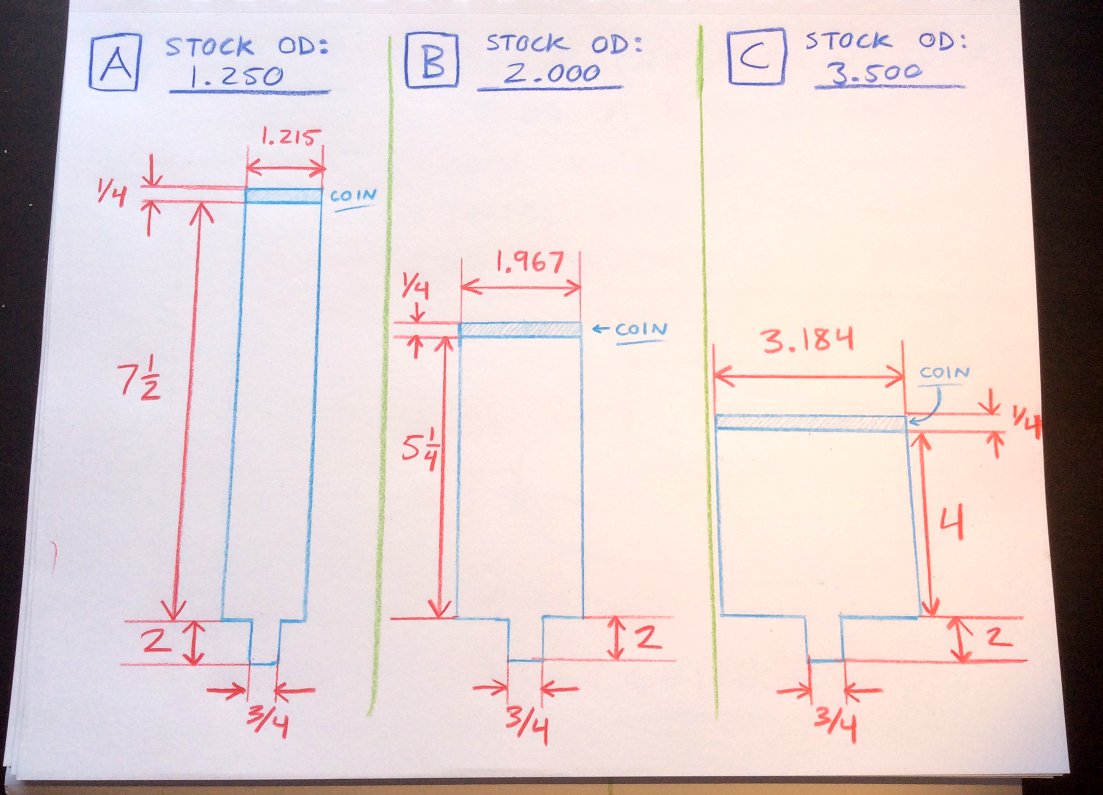 A STOCK OD:
1.250
1.215
1/4
COIN
7 1/2
2
3/4
B STOCK OD:
2.000
1.967
1/4
COIN
5 1/4
2
3/4
C STOCK OD:
3.500
3.184
COIN
1/4
4
2
3/4